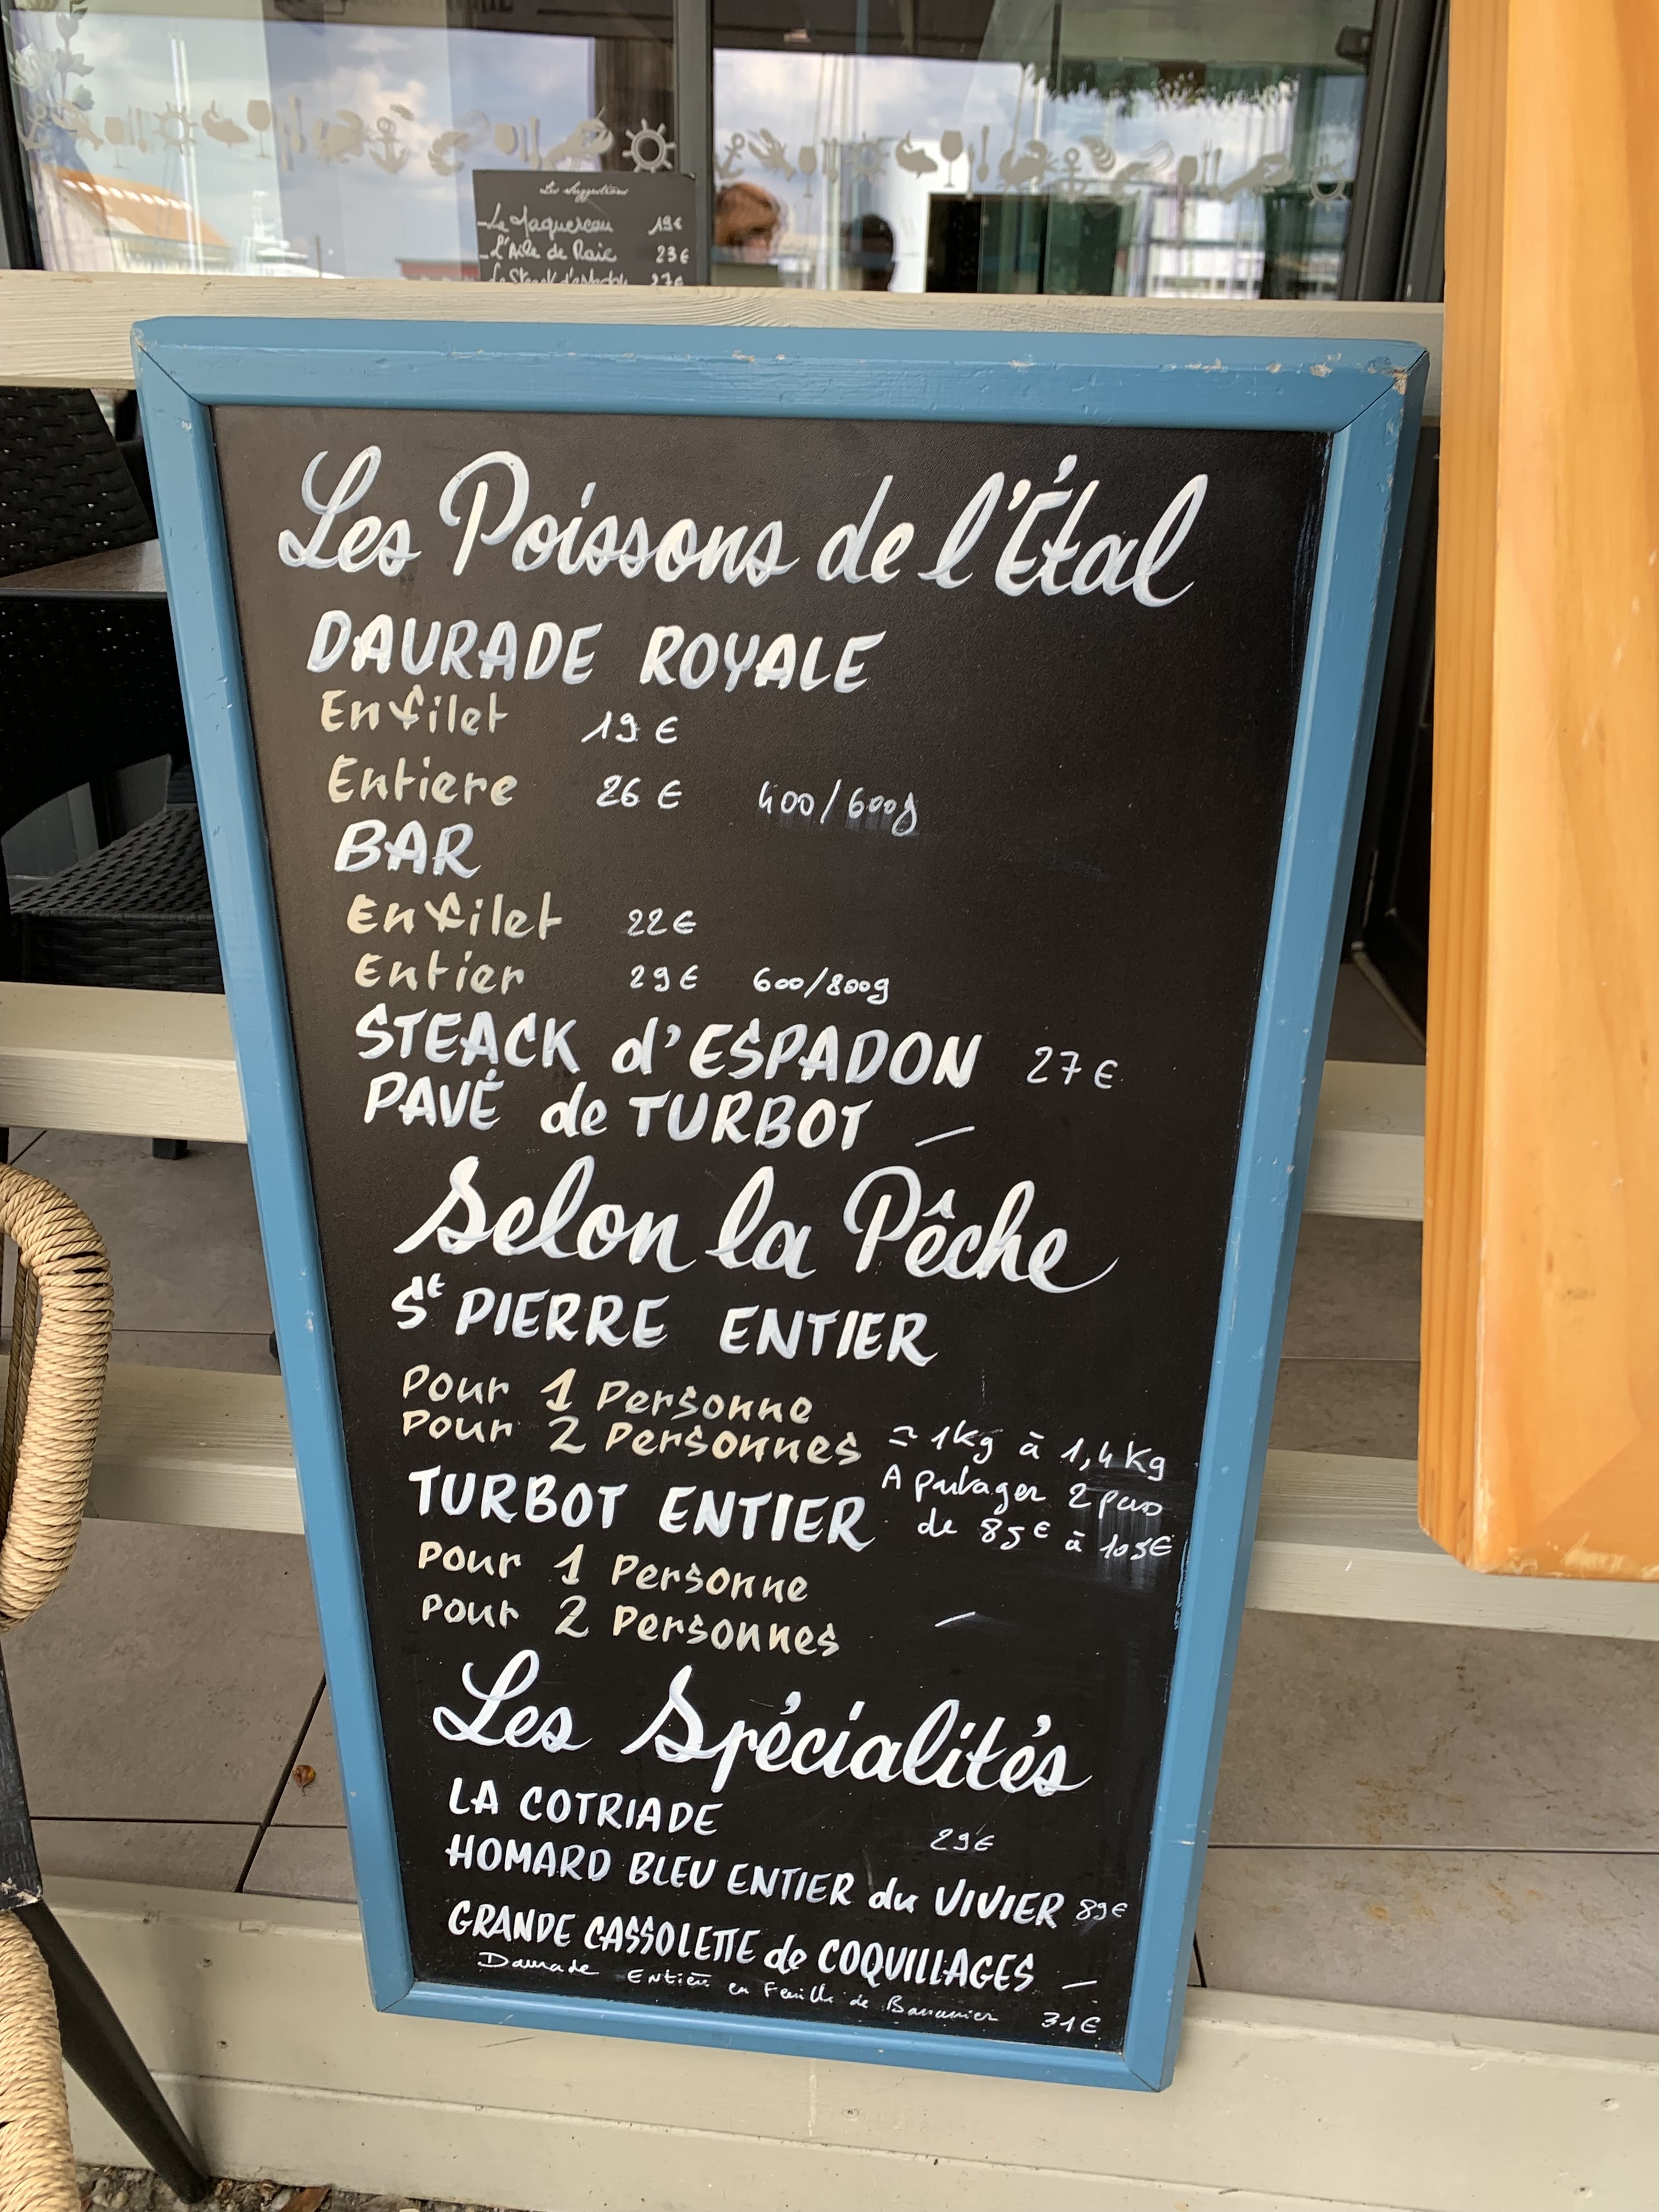 Les Suggestions
- Le Maquereau 19€
- L'Aile de Raie 23€
Le Steack d'espadon 27€
Les Poissons de l'Étal
DAURADE ROYALE
En filet 19 €
Entiere 26 € 400/600g
BAR
En filet 22€
Entier 29€ 600/800g
STEACK d'ESPADON 27€
PAVÉ de TURBOT —
Selon la Pêche
St PIERRE ENTIER
Pour 1 Personne
Pour 2 Personnes = 1kg à 1,4Kg
A partager 2 pers
de 85€ à 105€
TURBOT ENTIER
Pour 1 Personne
Pour 2 Personnes —
Les Spécialités
LA COTRIADE 29€
HOMARD BLEU ENTIER du VIVIER 89€
GRANDE CASSOLETTE de COQUILLAGES —
Daurade Entière en Feuille de Bananier 31€